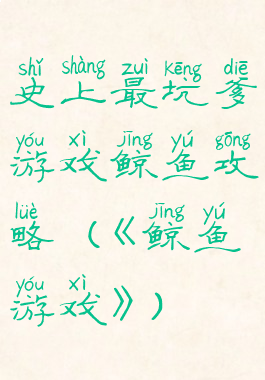 shǐ shàng zuì kēng diē
史上最坑爹
yóu xì jīng yú gōng
游戏鲸鱼攻
lüè jīng yú
略（《鲸鱼
yóu xì
游戏》）